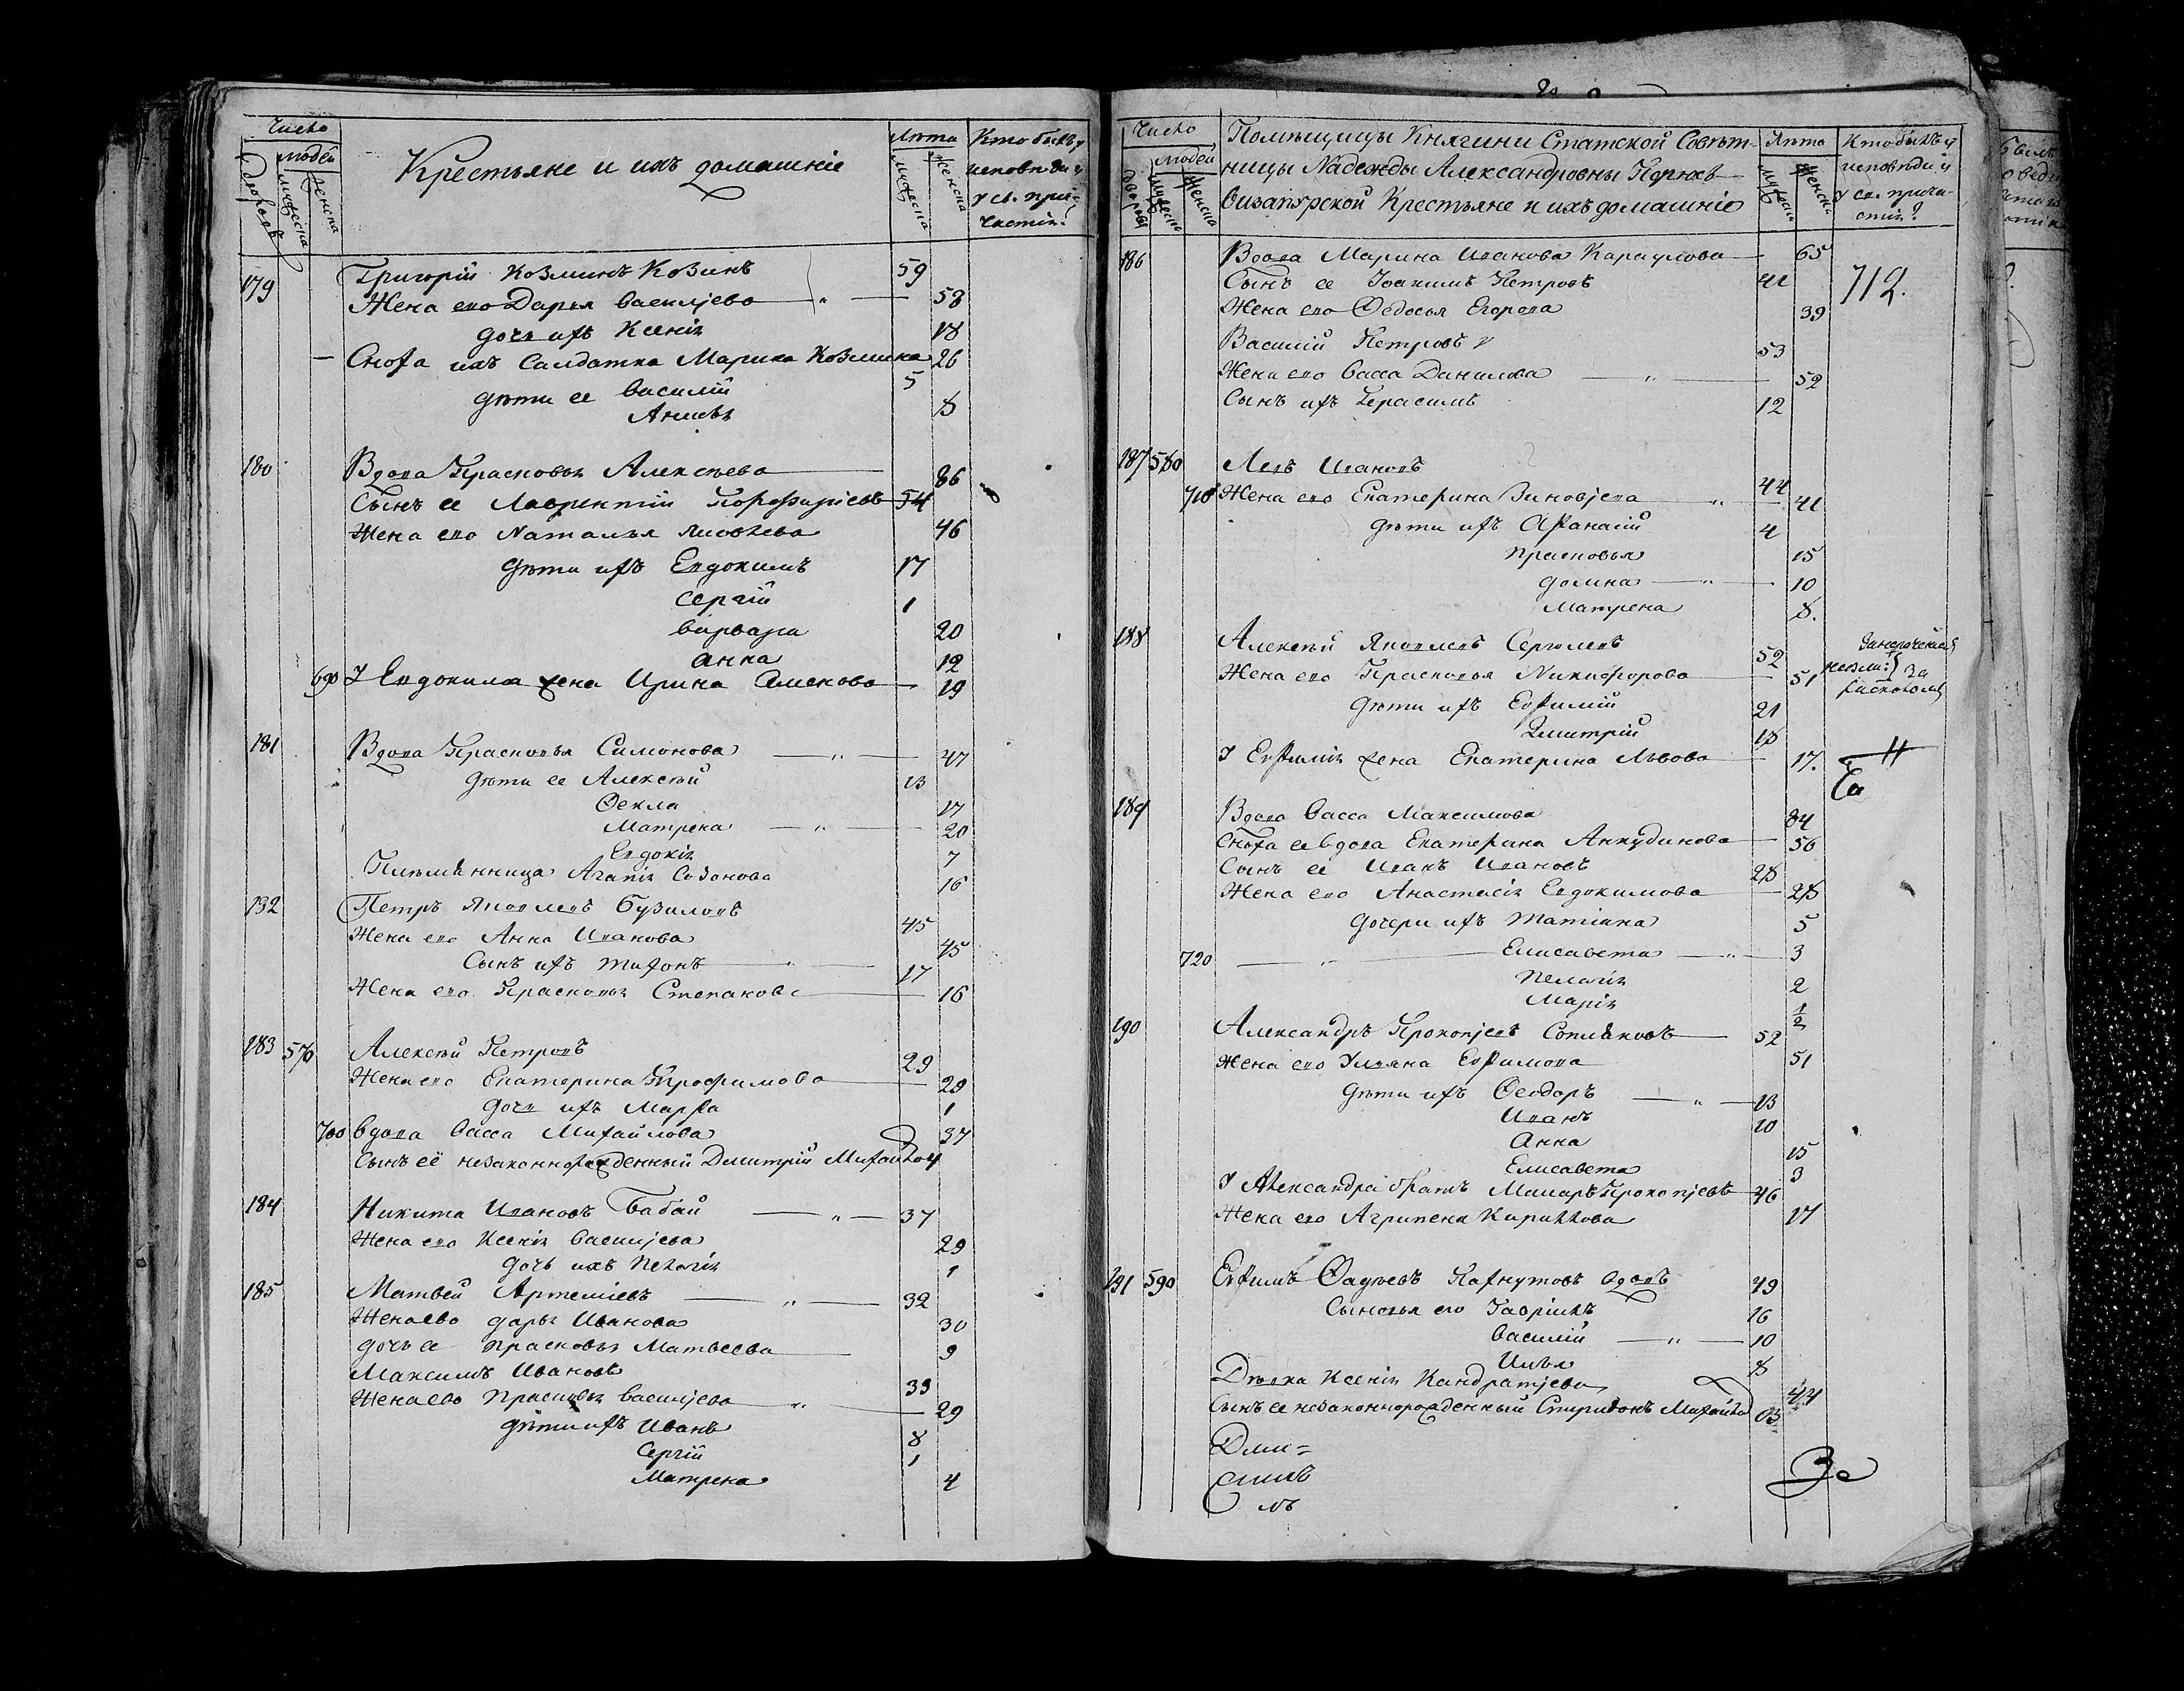 Число
людей
дворовъ
мужеска
женска
Крестьяне и ихъ домашніе
Лѣта
мужеска
женска
Кто былъ у
исповѣди и
у св. при-
частія?
179 Григорій Козминъ Козинъ 59
Жена его Дарья Васильева 58
дочь ихъ Ксенія 18
Сноха ихъ Салдатка Марина Козмина 26
дѣти ее Василій 5
8
180 Вдова Прасковья Алексѣева 86
Сынъ ее Лаврентій Порфиріевъ 54
Жена его Наталья Яковлева 46
дѣти ихъ Евдокимъ 17
Сергій 1
Варвара 20
Анна 12
690 У Евдокима жена Ирина Семенова 19
181 Вдова Прасковья Симонова 47
дѣти ее Алексѣй 13
Ѳекла 17
Матрена 20
Евдокія 7
Племянница Агапія Созонова 16
182 Петръ Яковлевъ 45
Жена его Анна Иванова 45
Сынъ ихъ Тихонъ 17
Жена его Прасковья Степанова 16
183 570 Алексѣй Петровъ 29
Жена его Екатерина Трофимова 29
дочь ихъ Марѳа 1
700 Вдова Васса Михайлова 37
Сынъ её незаконнорожденный Дмитрій
184 Никита Ивановъ Бабай 37
Жена его Ксенія Васильева 29
дочь ихъ Пелагія 1
185 Матвей Артеміевъ 32
Жена ево Дарья Иванова 30
дочь ее Прасковья Матвеева 9
Максимъ Ивановъ 33
Жена ево Прасковья Васильева 29
дѣти ихъ Иванъ 8
Сергій 1
Матрена 4
Число
людей
дворовъ
мужеска
женска
Помѣщицы Княгини Статской Совѣт-
ницы Надежды Александровны
Крестьяне и ихъ домашніе
Лѣта
мужеска
женска
Кто былъ у
исповѣди и
у св. прича-
стія?
186 Вдова Марина Иванова Караулова 65
Сынъ ее Іоакимъ Петровъ 41
712.
Жена его Ѳедосья Егорова 39
Василій Петровъ 53
Жена его Васса Данилова 52
Сынъ ихъ Герасимъ 12
187 580 Левъ Ивановъ 44
710 Жена его Екатерина Зиновьева 41
дѣти ихъ Аѳанасій 4
Прасковья 15
Домна 10
Матрена 8.
188 Алексѣй Яковлевъ 52
Жена его Прасковья Никифорова 51
за
дѣти ихъ Евѳимій 21
Димитрій 18
У Евѳимія жена Екатерина Львова 17.
189 Вдова Васса Максимова 84
Сноха ее вдова Екатерина Анкудинова 56
Сынъ её Иванъ Ивановъ 28
Жена его Анастасія Евдокимова 28
дочери ихъ Татіана 5
720 Елисавета 3
Пелагія 2
Марія 1/2
190 Александръ Прокопьевъ Сопляковъ 52
Жена его Ульяна Евѳимова 51
дѣти ихъ Ѳеодоръ 13
Иванъ 10
Анна 15
Елисавета 3
У Александра братъ Макаръ Прокопьевъ 46
Жена его Агрипена Кирилова 17
191 590 Евѳимъ Ѳадѣевъ Пахнутовъ вдовъ 49
Сыновья его Гавріилъ 16
Василій 10
Илья 8
Дѣвка Ксенія Кандратьева 44
Сынъ ее незаконнорожденный Спиридонъ